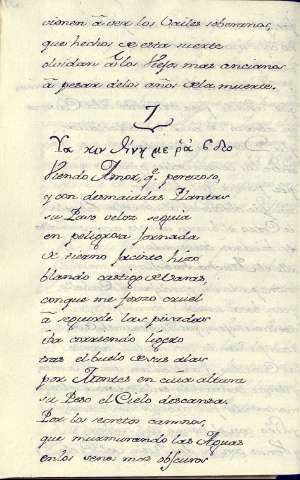 vienen à ser los Bailes soberanos,
que hechos de esta suerte
olvidan à los Viejos mas ancianos
à pesar delos años dela muerte.
7
Viendo Amor, q.e perezoso,
y con desmaiadas Plantas
su Paso veloz seguia
en peligrosa jornada
de tirano Jacinto hizo
blando castigo de Varas,
con que me forzo cruel
à seguirle las pisadas
iba corriendo ligero
tras el buelo de sus alas
por Montes en cuia altura
su Peso el Cielo descansa.
Por los secretos caminos,
que murmurando las Aguas
en los senos mas obscuros